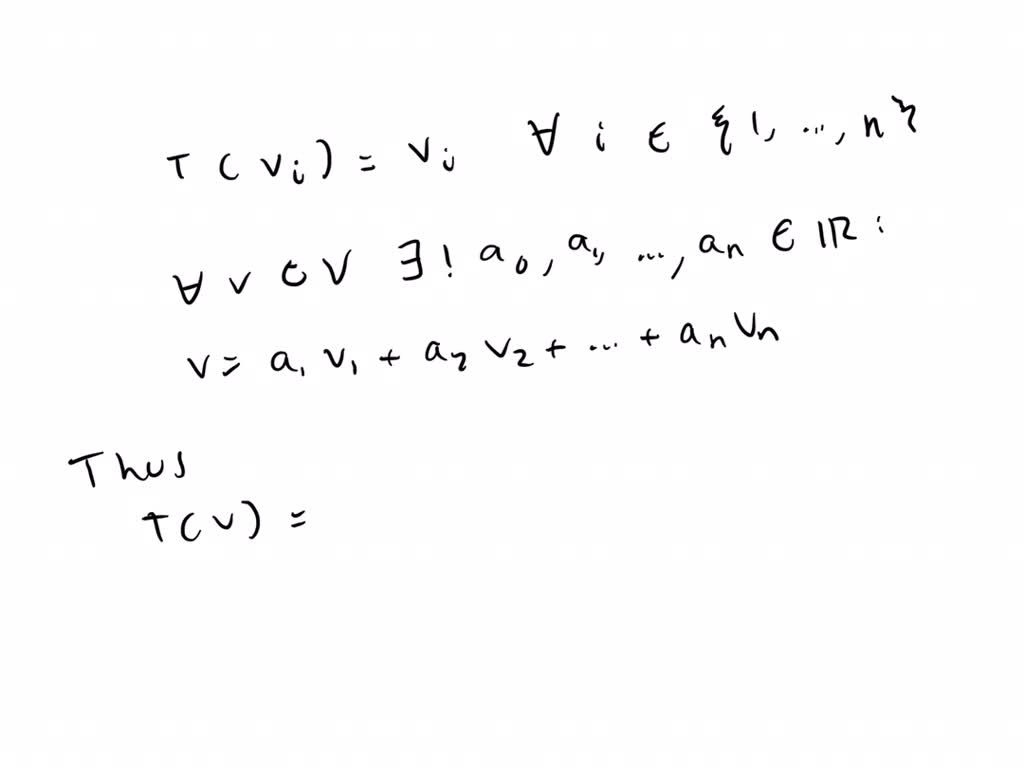 T(vᵢ) = vᵢ ∀ i ∈ {1, ..., n}
∀ v ∈ V ∃! a₀, a₁, ..., aₙ ∈ ℝ :
v = a₁ v₁ + a₂ v₂ + ... + aₙ vₙ
Thus
T(v) =